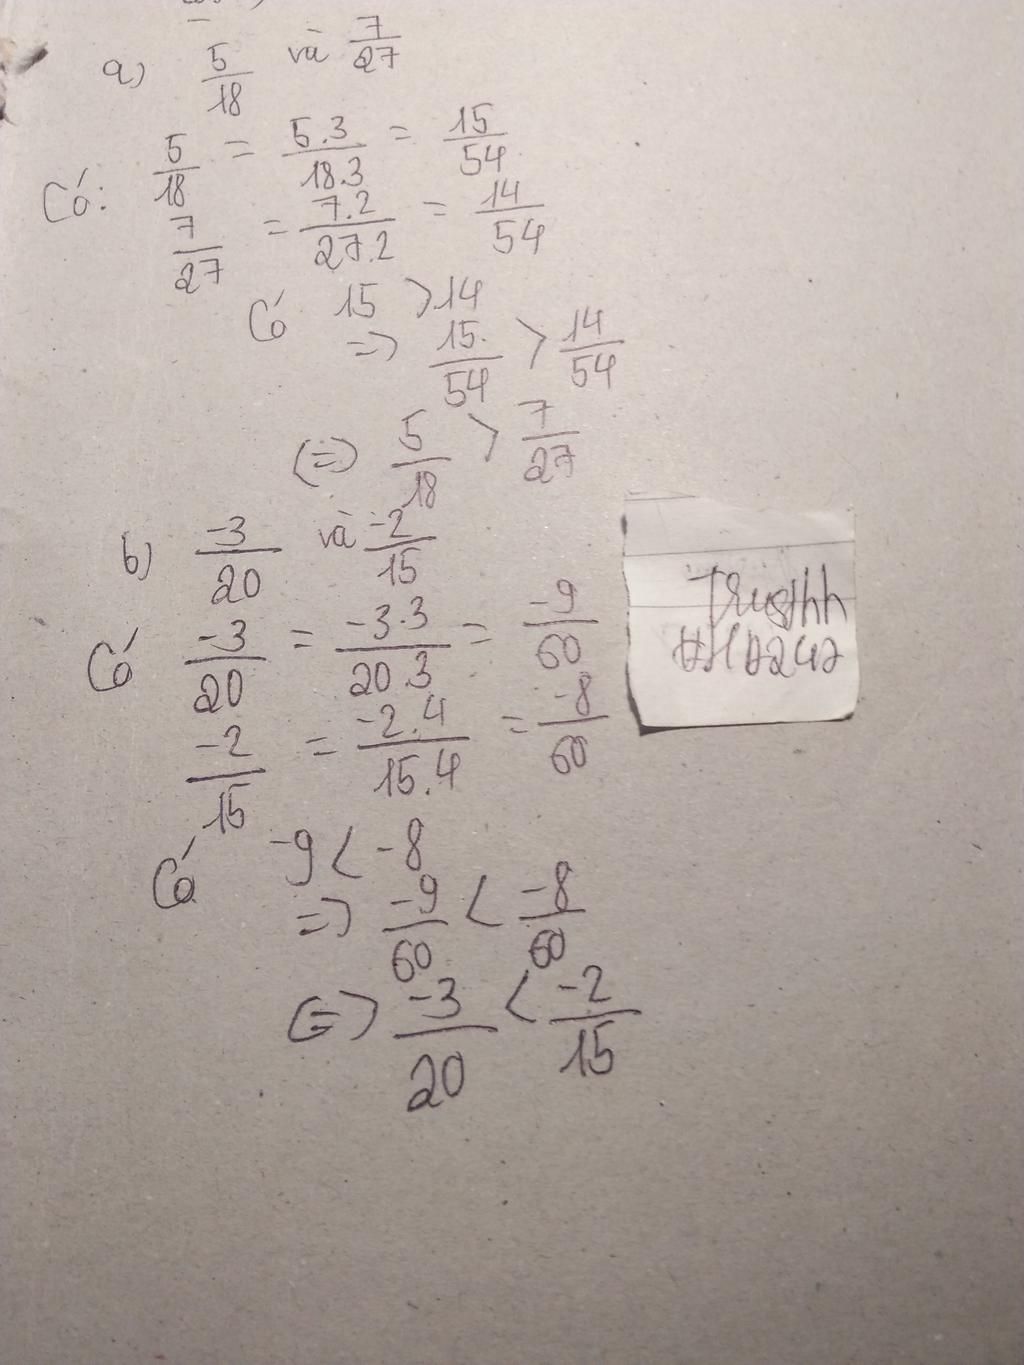 a) 5/18 và 7/27
Có: 5/18 = 5.3/18.3 = 15/54
7/27 = 7.2/27.2 = 14/54
Có 15 > 14
=> 15/54 > 14/54
(=) 5/18 > 7/27
b) -3/20 và -2/15
Có -3/20 = -3.3/20.3 = -9/60
-2/15 = -2.4/15.4 = -8/60
Có -9 < -8
=> -9/60 < -8/60
(=) -3/20 < -2/15